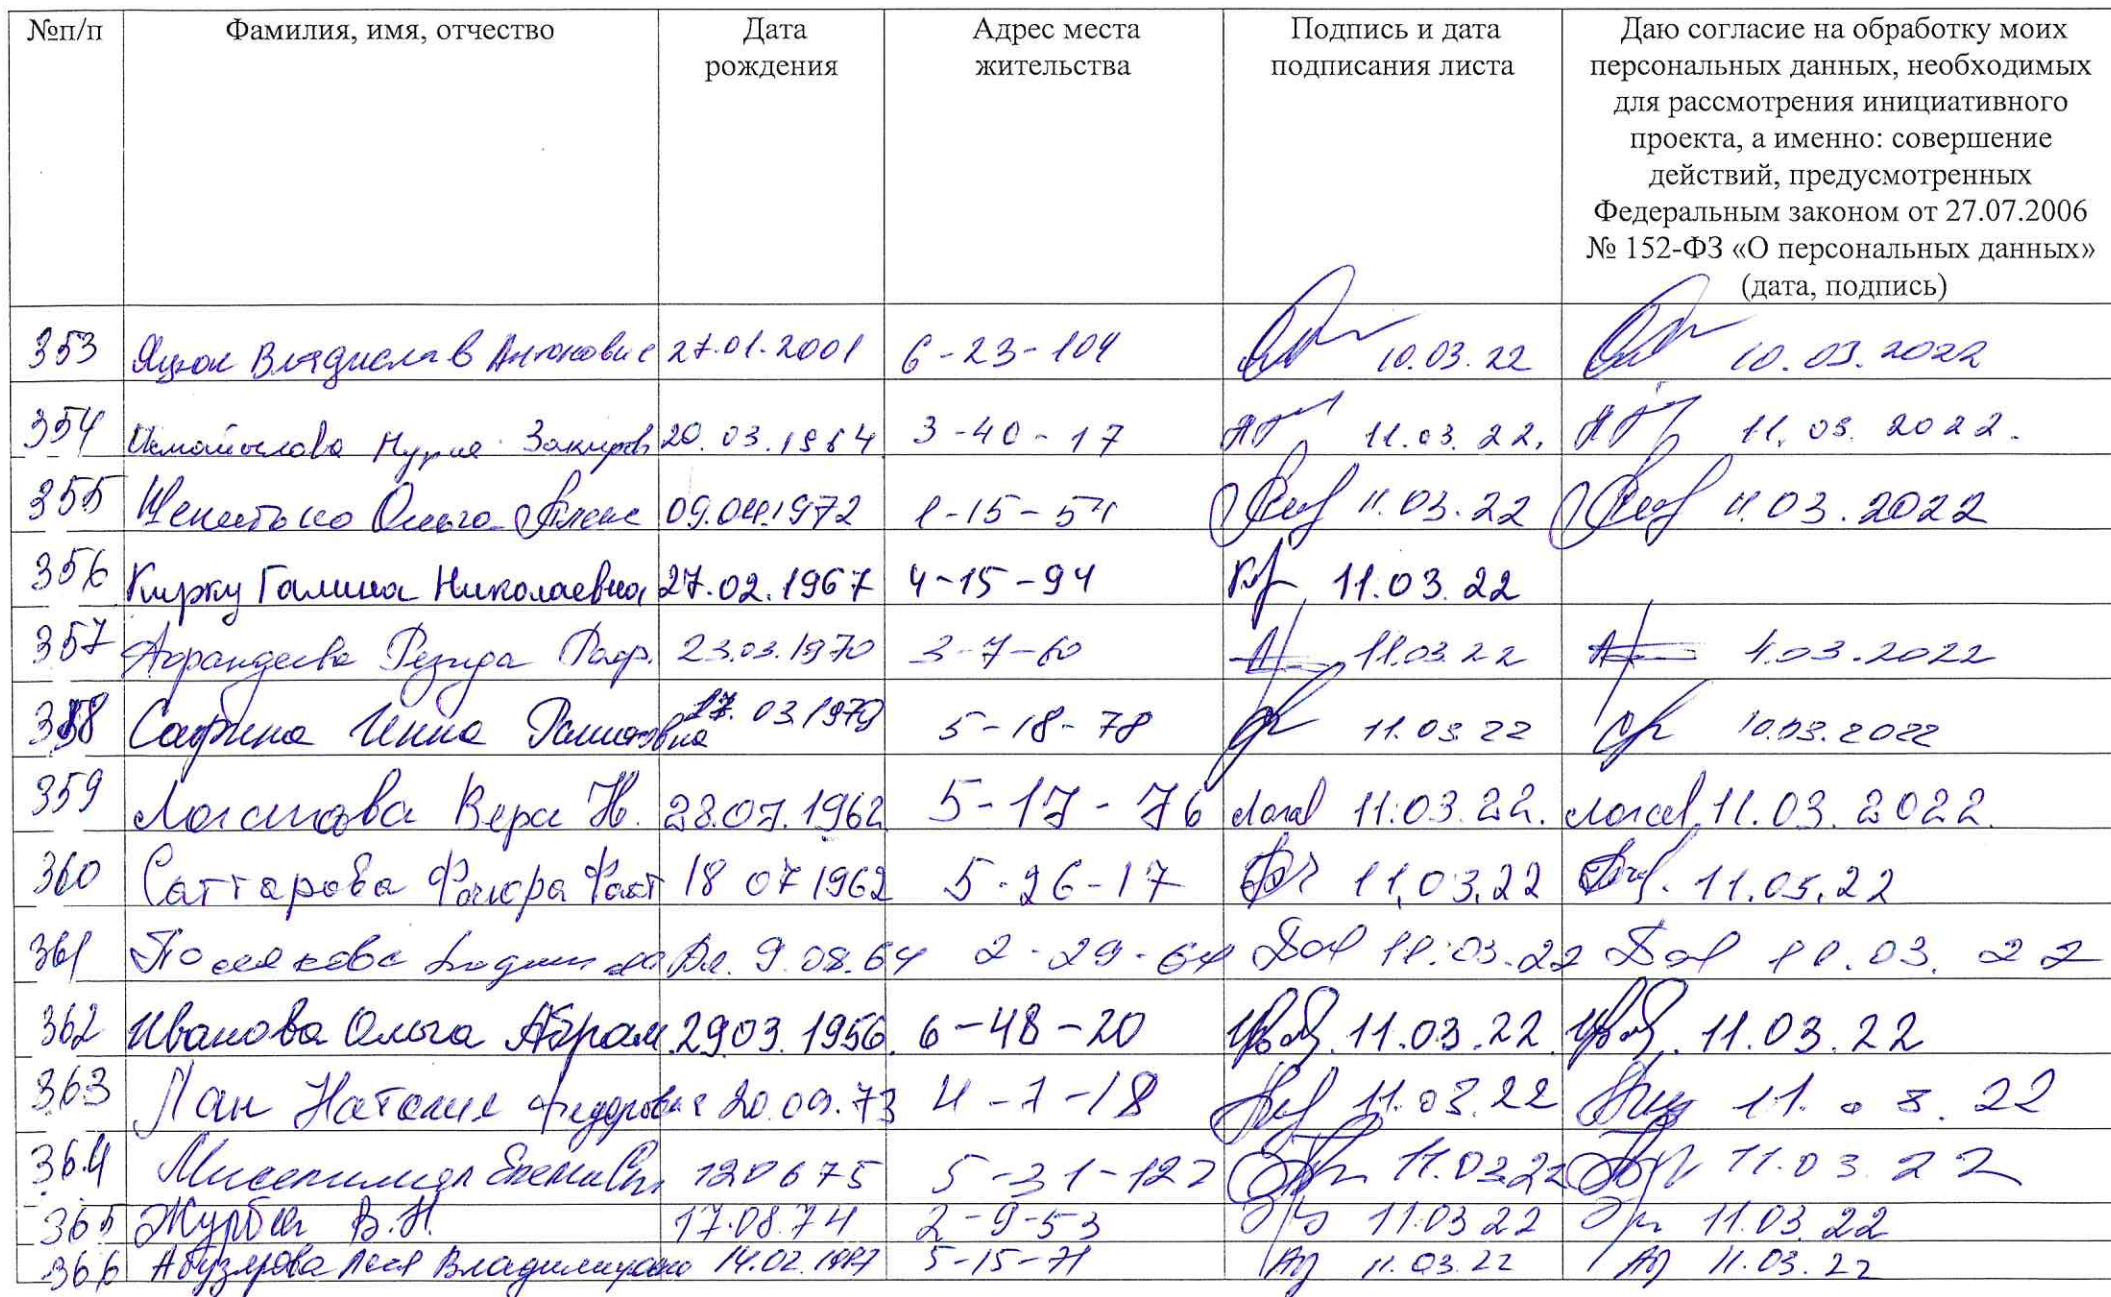 №п/п Фамилия, имя, отчество Дата рождения Адрес места жительства Подпись и дата подписания листа Даю согласие на обработку моих
персональных данных, необходимых
для рассмотрения инициативного
проекта, а именно: совершение
действий, предусмотренных
Федеральным законом от 27.07.2006
№ 152-ФЗ «О персональных данных»
(дата, подпись)
353 Владислав 27.01.2001 6-23-104 10.03.22 10.03.2022
354 Исмайылова Нурия Закиров 20.03.1964 3-40-17 11.03.22. 11.03.2022.
355 Ольга 09.04.1972 1-15-54 11.03.22 11.03.2022
356 Кирку Галина Николаевна 27.02.1967 4-15-94 11.03.22
357 Резида 23.03.1970 3-7-60 11.03.22 11.03.2022
358 Сафина Инна 03.1979 5-18-78 11.03.22 10.03.2022
359 Вера Н. 28.07.1962 5-17-76 11.03.22. 11.03.2022.
360 Саттарова 18 07 1962 5-26-17 11.03.22 11.03.22
361 9.08.64 2-29-64 11.03.22 11.03.22
362 Иванова Ольга Абрам 29.03.1956. 6-48-20 11.03.22. 11.03.22
363 Лан Наталия Федоровна 20.09.73 4-1-18 11.03.22 11.03.22
364 120675 5-31-122 11.03.22 11.03.22
365 Журба В.Н. 17.08.74 2-9-53 11.03.22 11.03.22
366 Абузярова Леся Владимировна 14.02. 5-15-71 11.03.22 11.03.22